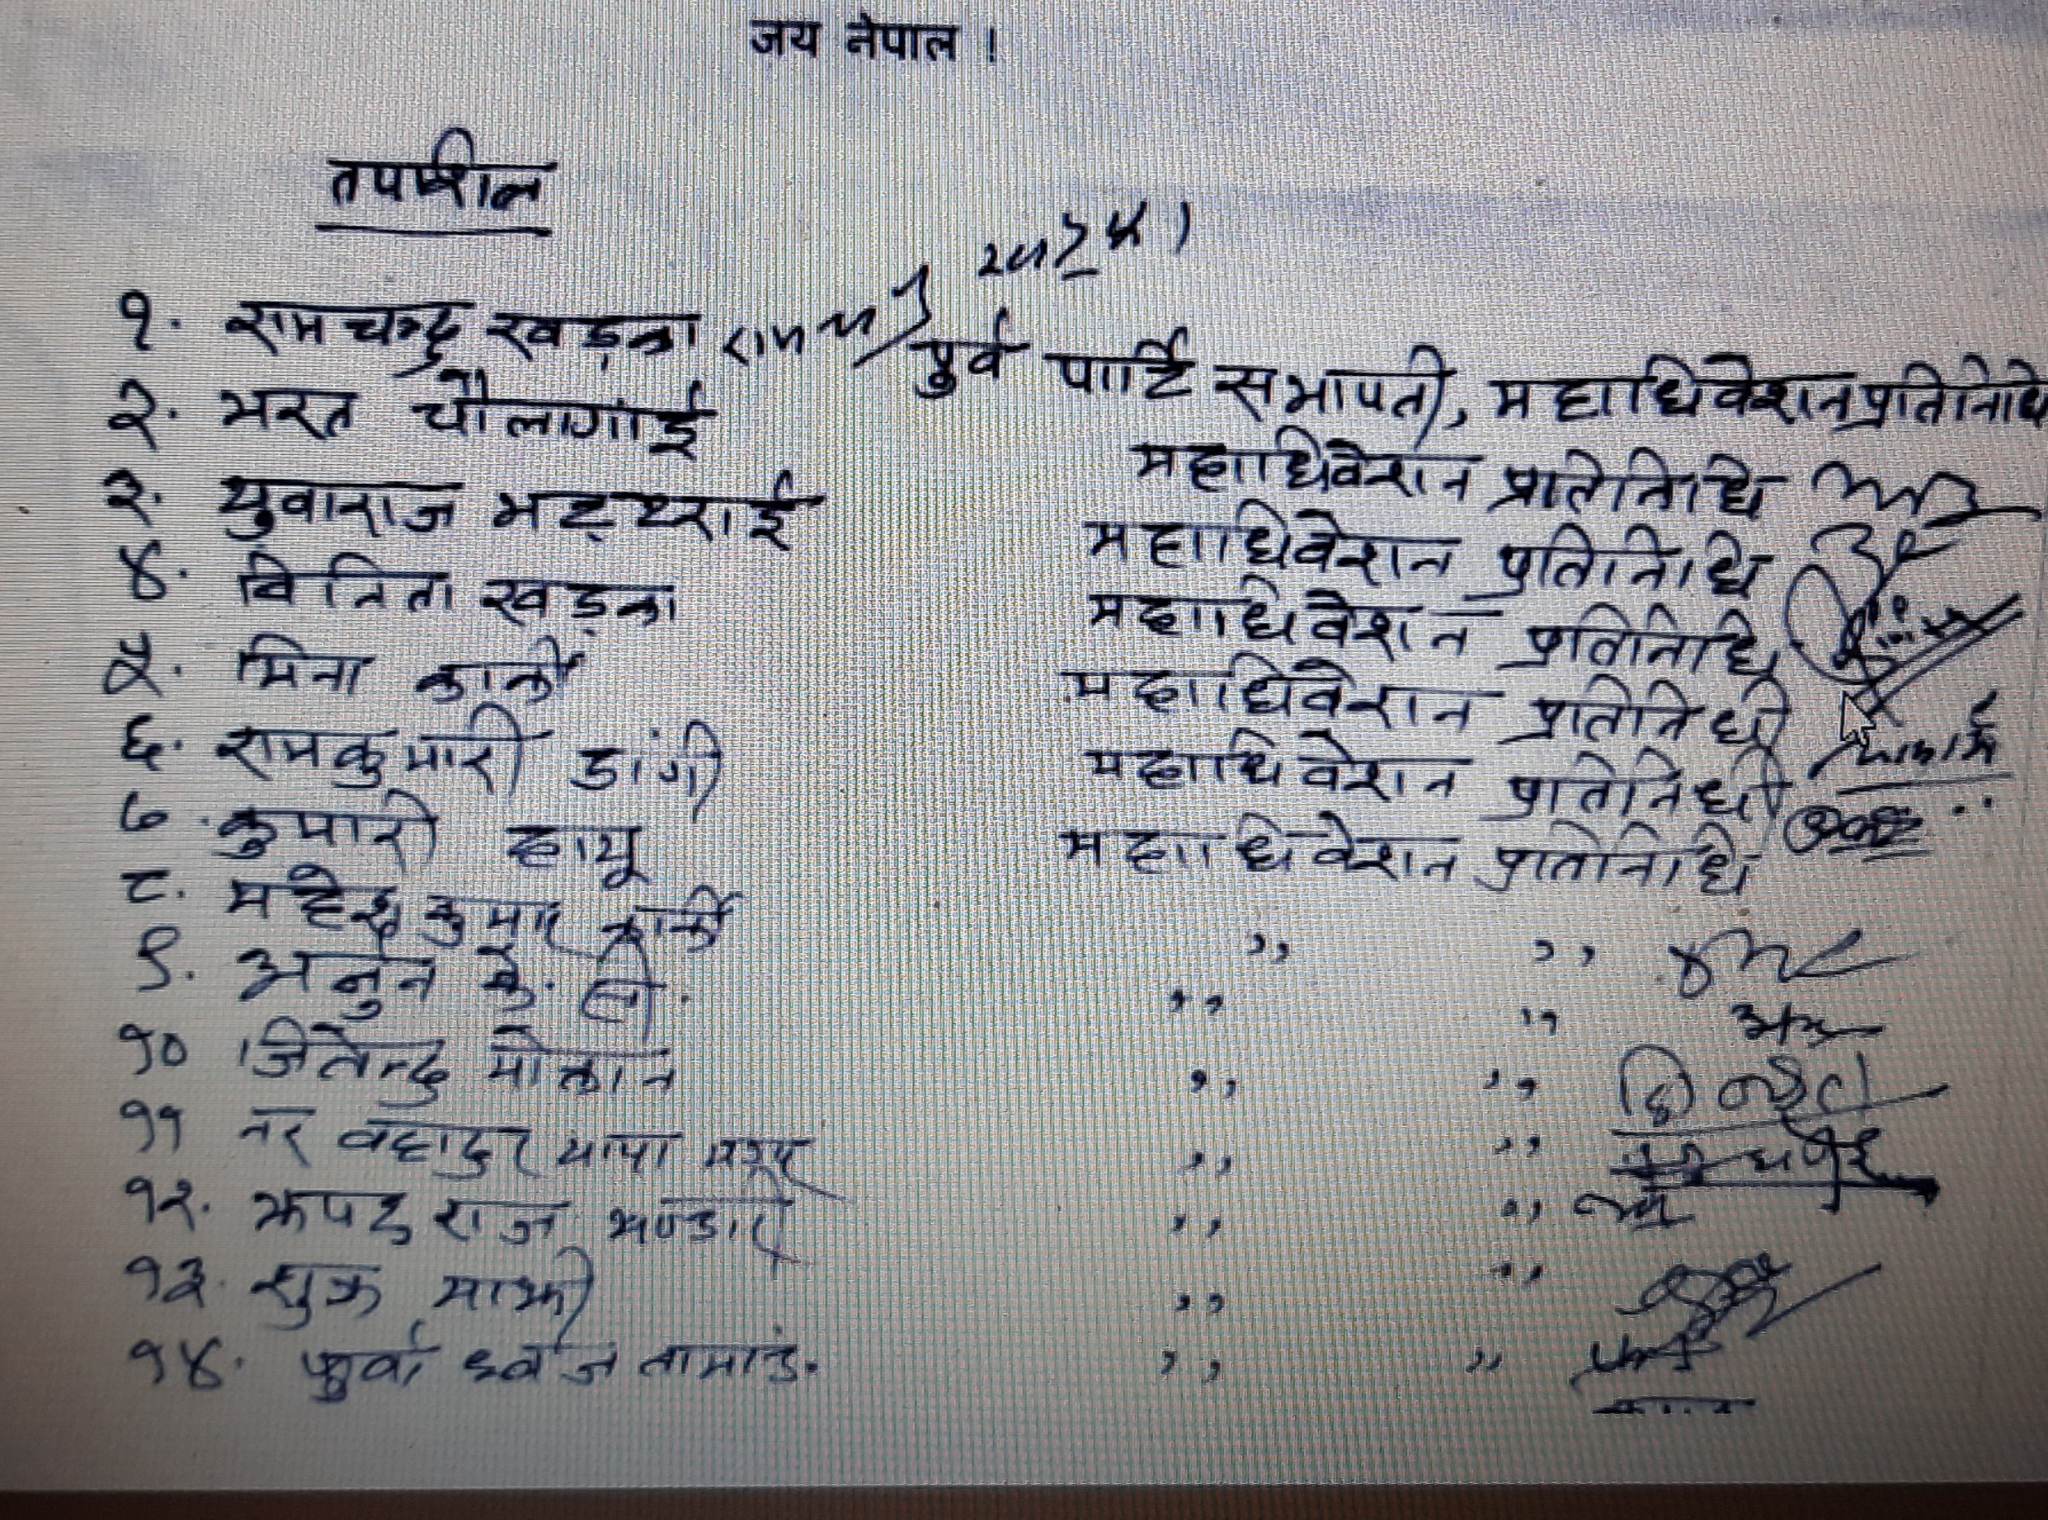 जय नेपाल !
तपशील
१. रामचन्द्र खड्का पुर्व पार्टि सभापती, महाधिवेशन प्रतिनिधि
२. भरत चौलागाई महाधिवेशन प्रतिनिधि
३. युवाराज भट्टराई महाधिवेशन प्रतिनिधि
४. विनिता खड्का महाधिवेशन प्रतिनिधि
५. मिना कार्की महाधिवेशन प्रतिनिधी
६. रामकुमारी डांगी महाधिवेशन प्रतिनिधी
७. कुमारी हायू महाधिवेशन प्रतिनिधि
८. महेन्द्र कुमार कार्की ,, ,,
९. अर्जुन के. सी. ,, ,,
१० जितेन्द्र मोक्तान ,, ,,
११ नर वहादुर थापा मगर ,, ,,
१२. झपट राज भण्डारी ,, ,,
१३. शुक्र माझी ,, ,,
१४. फुर्वा ध्वज तामाङ. ,, ,,